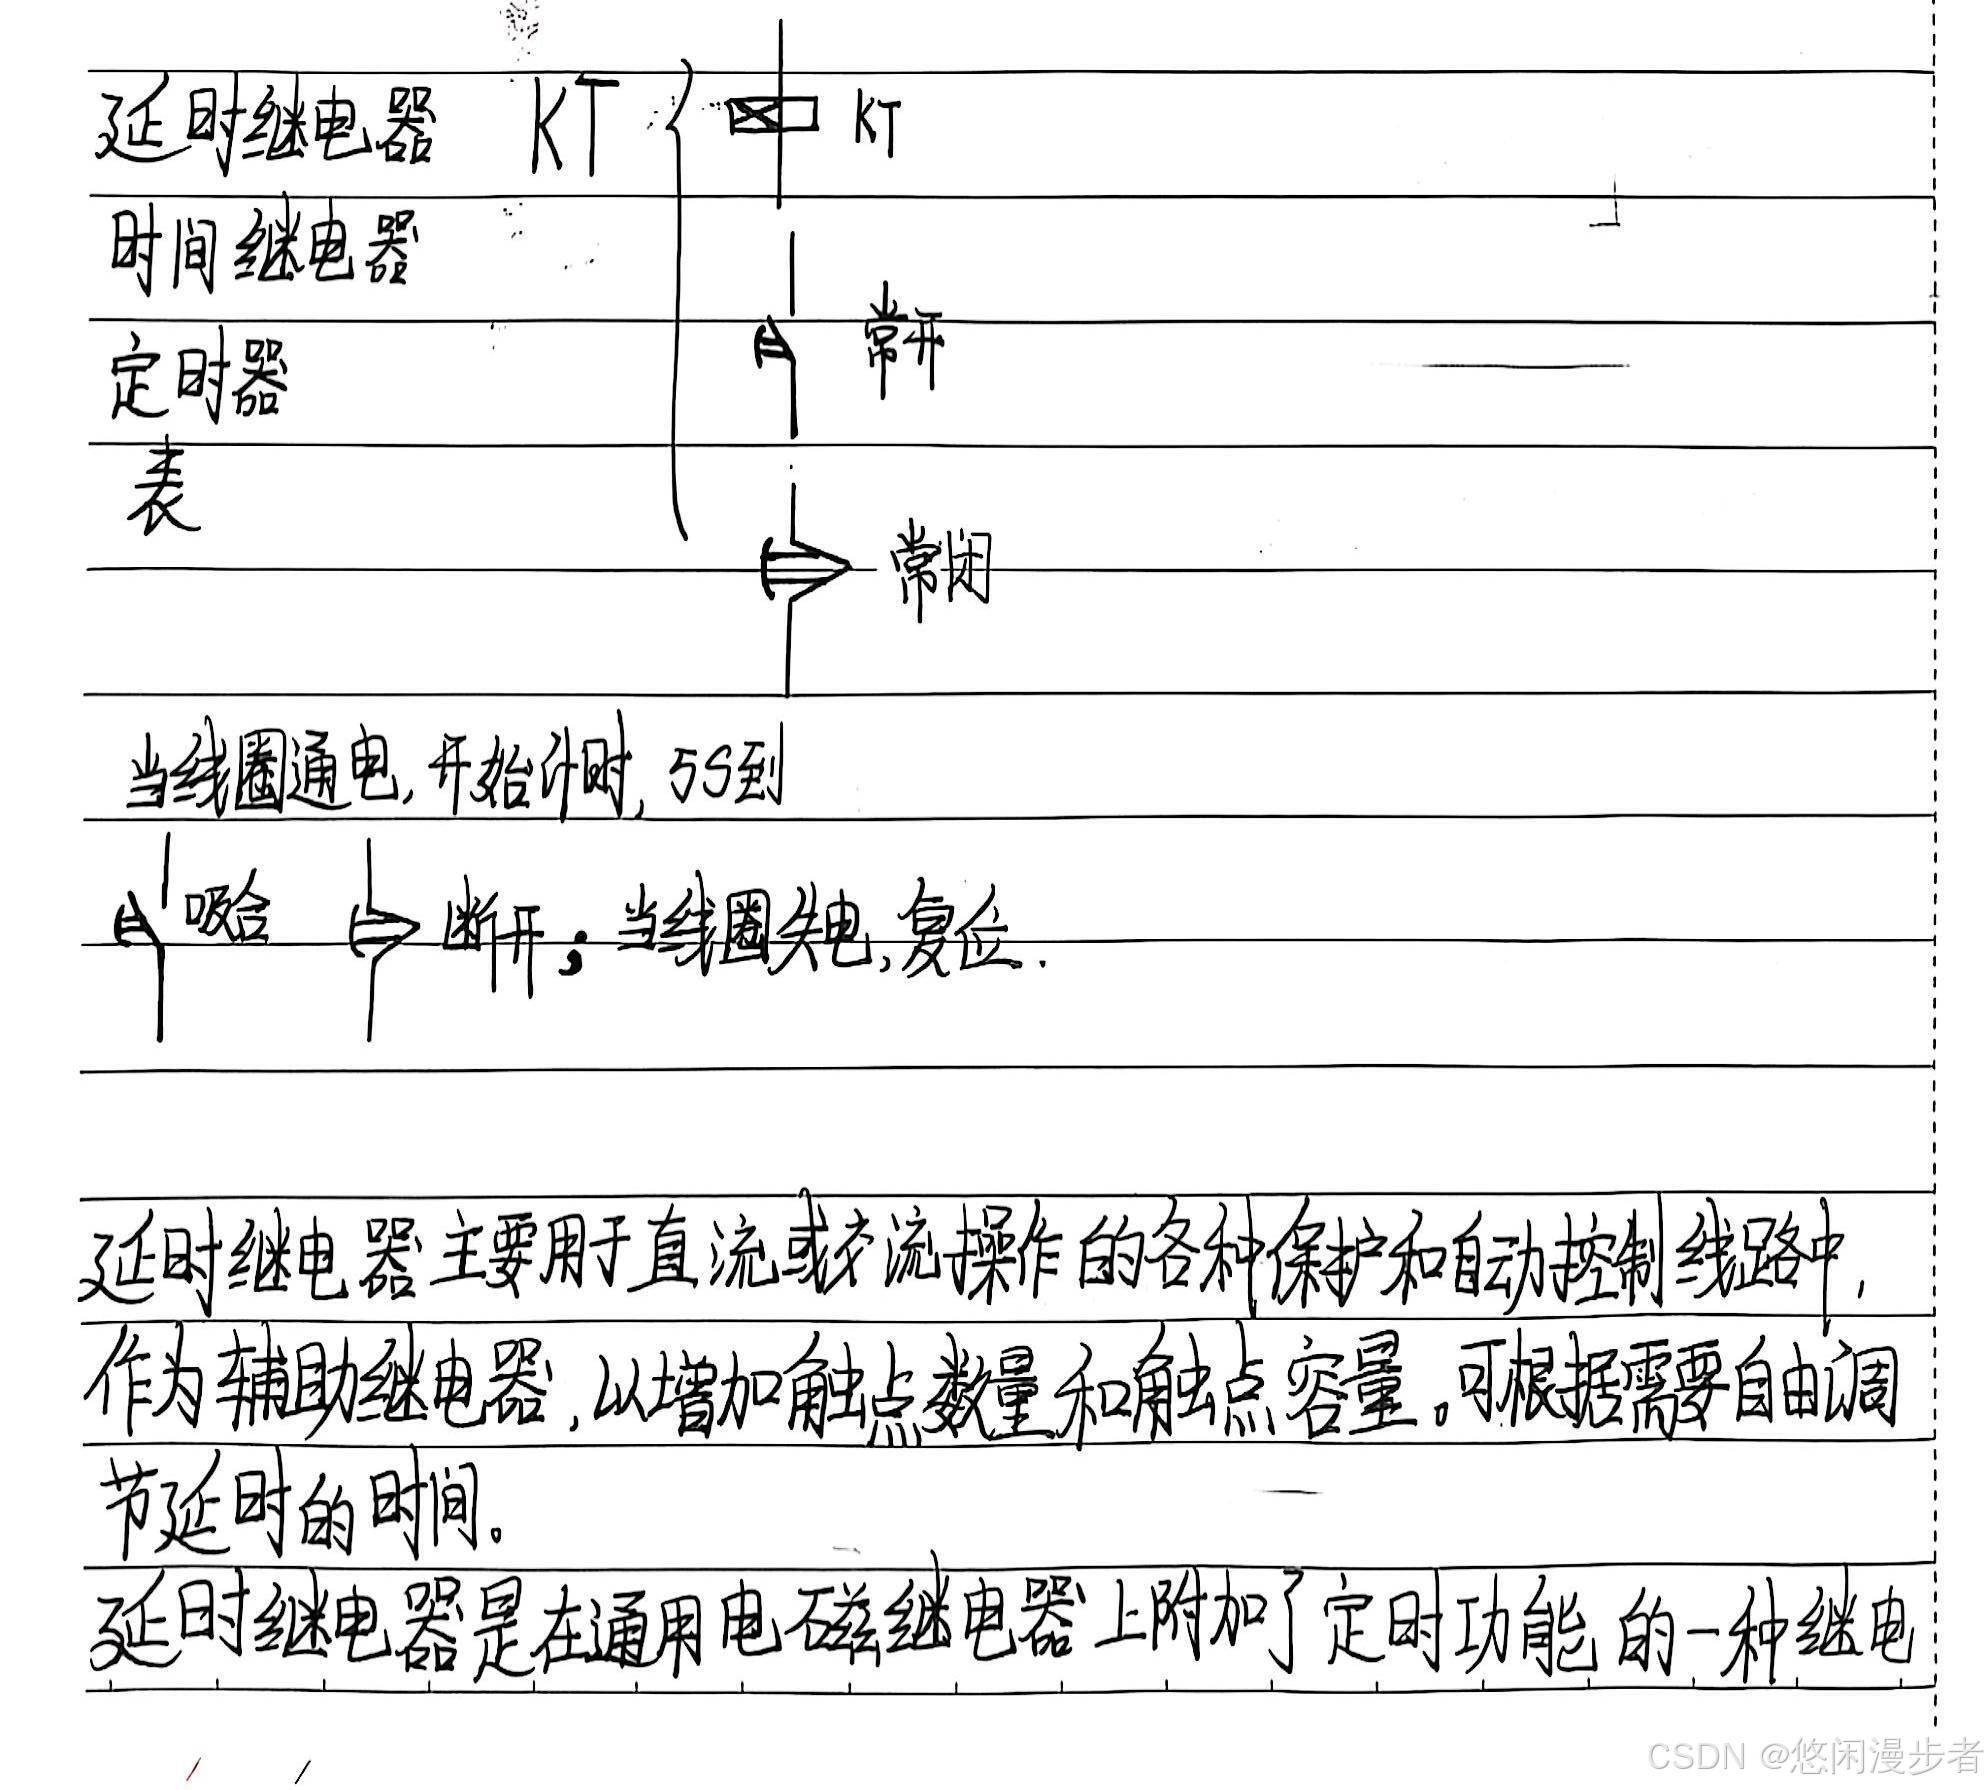 延时继电器 KT
KT
时间继电器
常开
定时器
表
常闭
当线圈通电,开始计时,5S到
吸合 断开;当线圈失电,复位.
延时继电器主要用于直流或交流操作的各种保护和自动控制线路中,
作为辅助继电器,以增加触点数量和触点容量。可根据需要自由调
节延时的时间。
延时继电器是在通用电磁继电器上附加了定时功能的一种继电
CSDN @悠闲漫步者